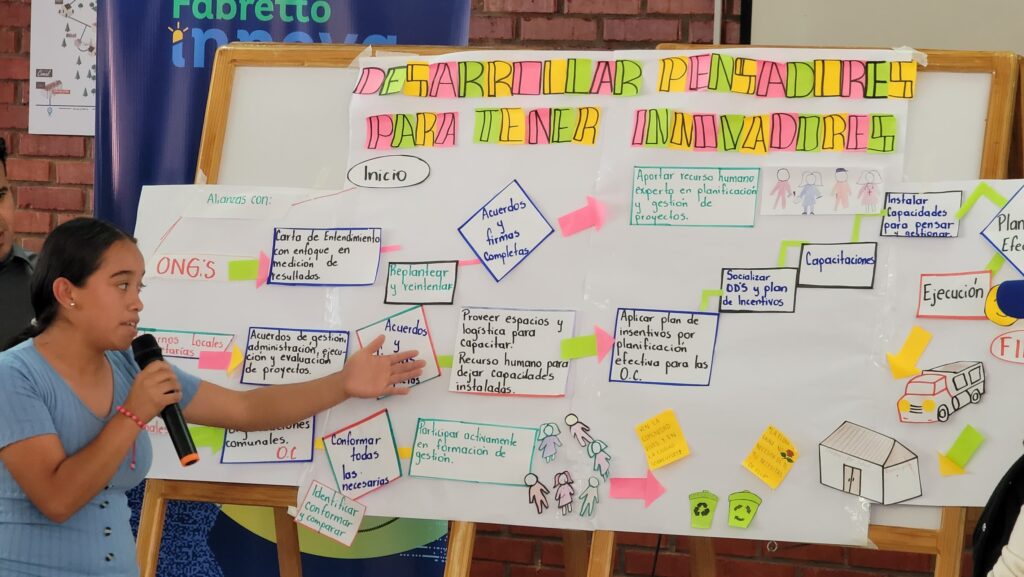 Fabretto
innova
DESARROLLAR PENSADORES
PARA TENER INNOVADORES
Inicio
Alianzas con:
ONG'S
Carta de Entendimiento
con enfoque en
medición de
resultados.
Replantear
y reintentar
Acuerdos
y
firmas
Completas
Aportar recurso humano
experto en planificación
y gestión de
proyectos.
Instalar
Capacidades
para pensar
y gestionar
Capacitaciones
Socializar
OD'S y plan
de Incentivos
Ejecución
Locales
Acuerdos de gestión,
administración, ejecu-
ción y evaluación
de proyectos.
Acuerdos
y
Proveer espacios y
logística para
Capacitar.
Recurso humano para
dejar capacidades
instaladas.
Aplicar plan de
insentivos por
planificación
efectiva para las
O.C.
comunales.
O.C
Conformar
todas
las
necesarias
Identificar
Conformar
y comparar
Participar activamente
en formación de
gestión.